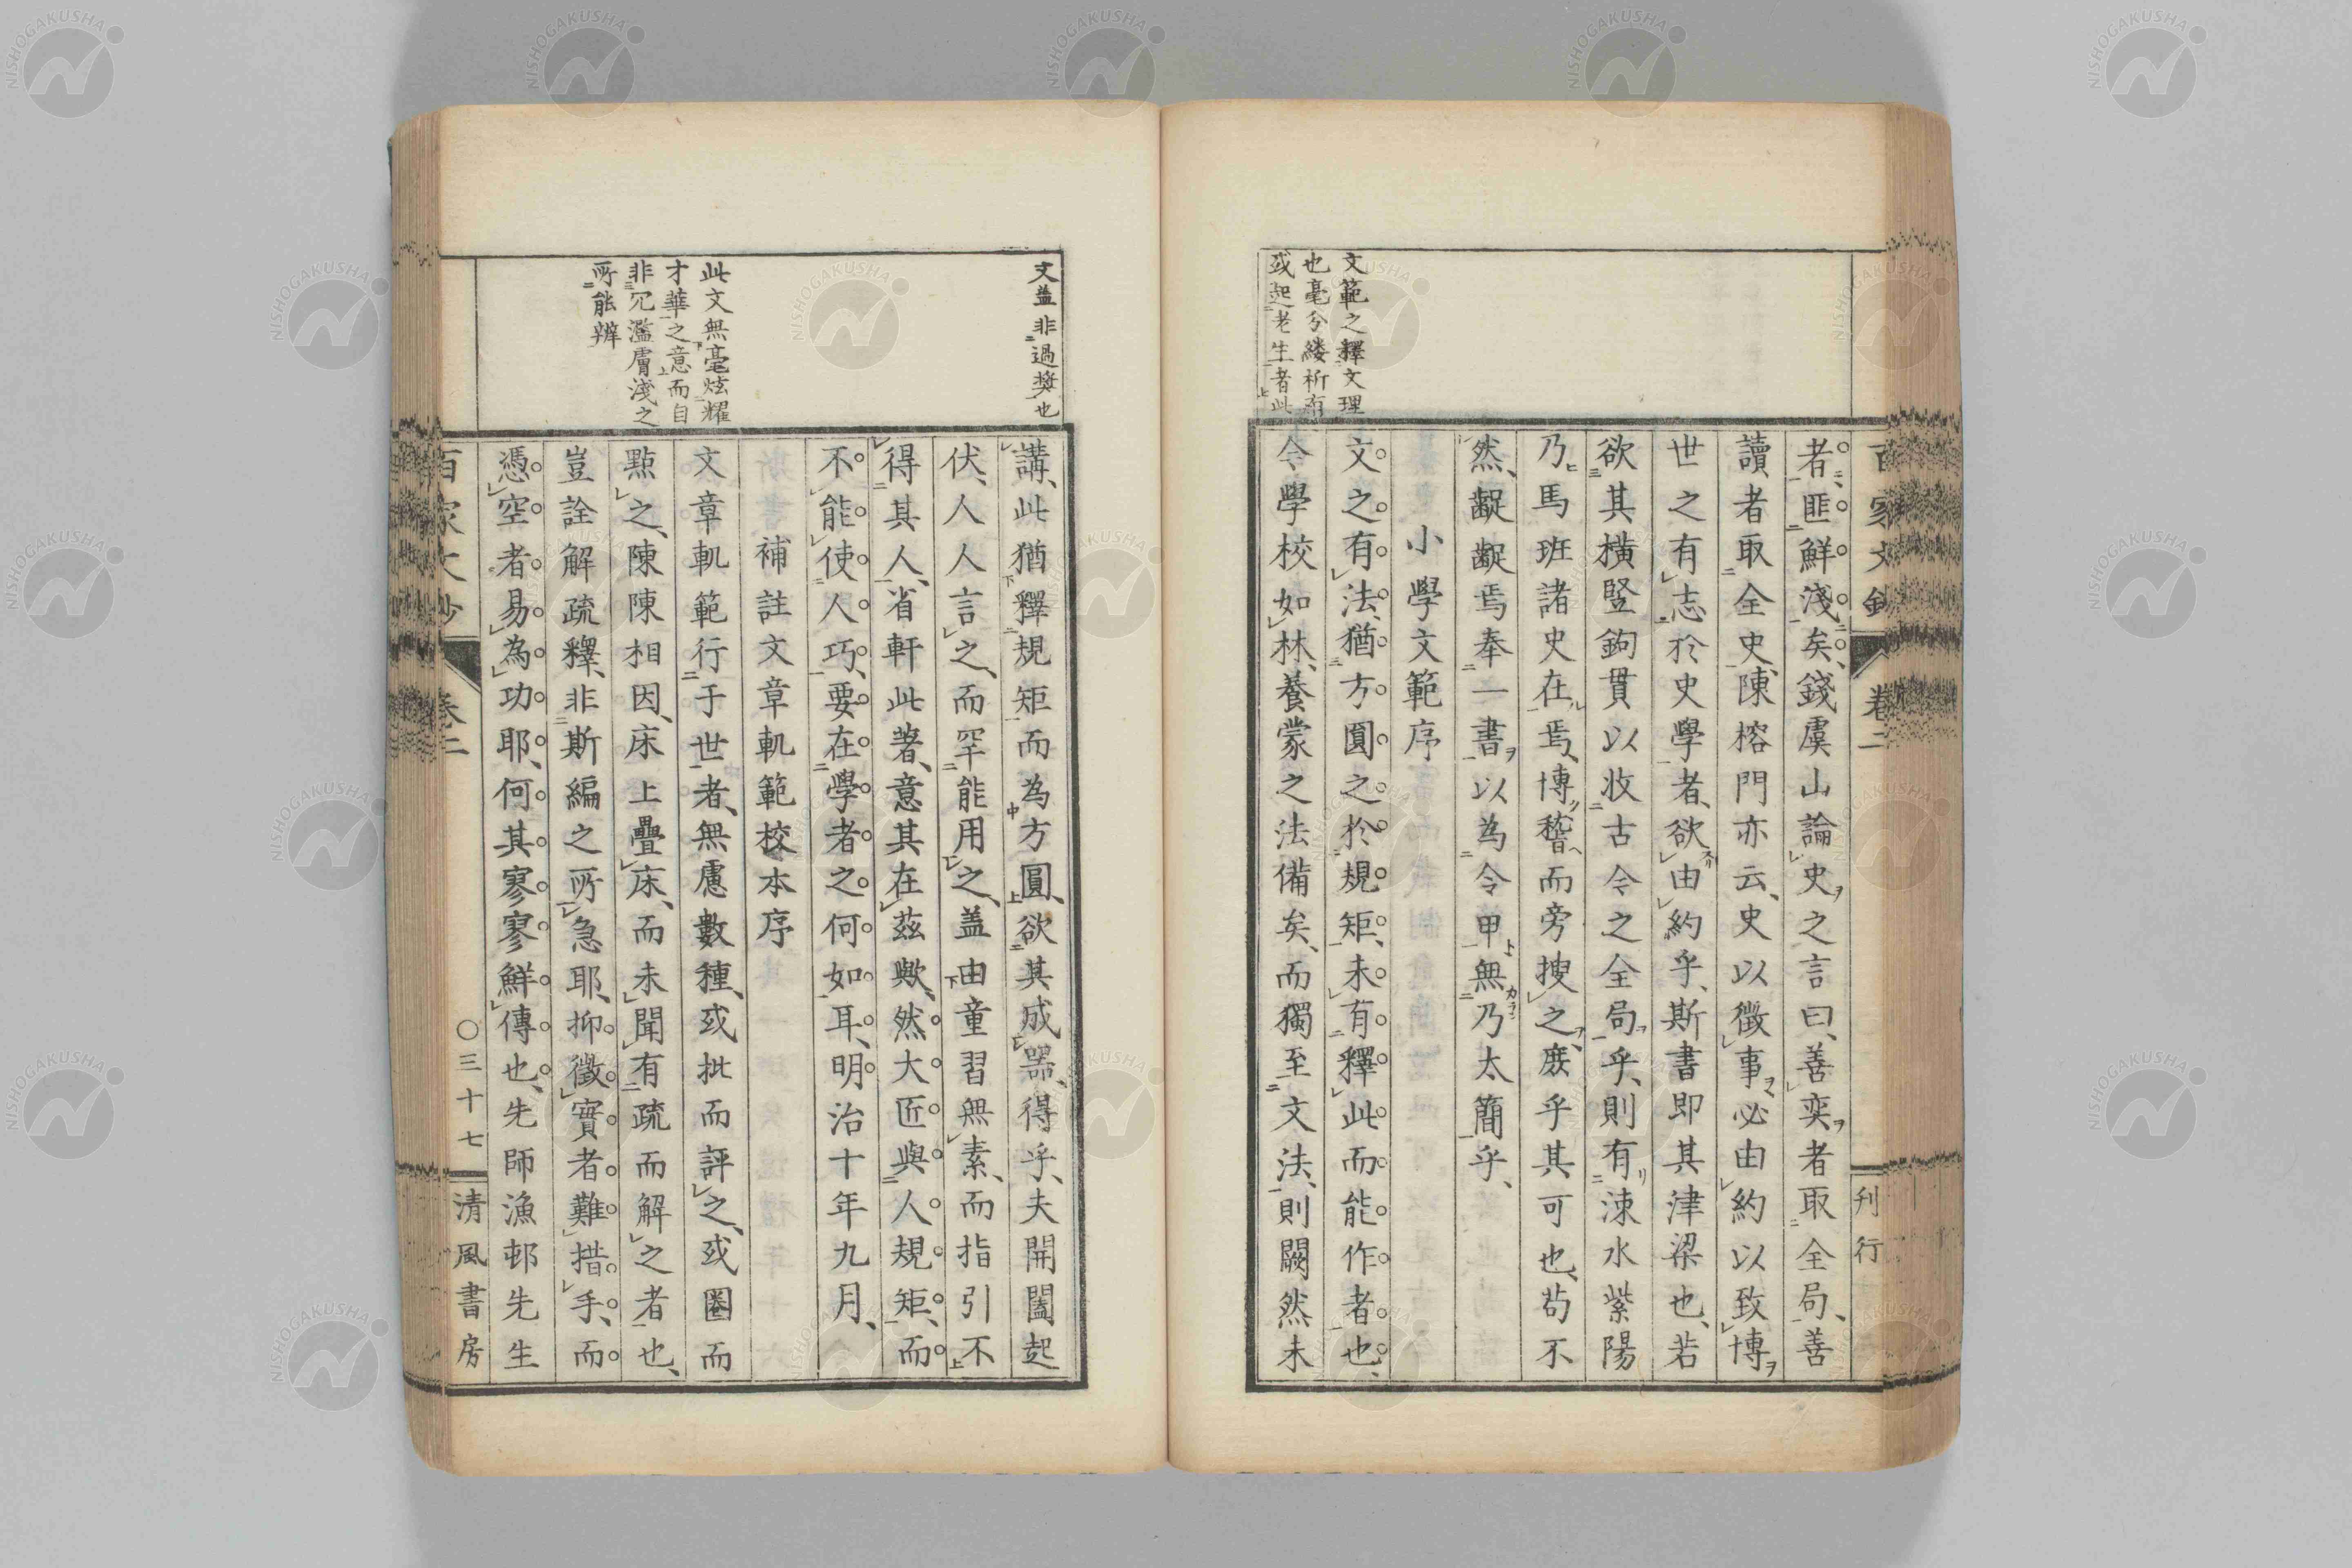 百家文鈔 卷二 刊行
者匪鮮淺矣錢虞山論史之言曰善奕者取全局善
讀者取全史陳榕門亦云史以徵事必由約以致博
世之有志於史學者欲由約乎斯書即其津梁也若
欲其橫竪鉤貫以收古今之全局乎則有涑水紫陽
乃馬班諸史在焉博稽而旁搜之庶乎其可也苟不
然齪齪焉奉一書以為令甲無乃太簡乎
小學文範序
文之有法猶方圓之於規矩未有釋此而能作者也
今學校如林養蒙之法備矣而獨至文法則闕然未
文範之釋文理
也毫分縷析有
或起老生者此
文盖非過奬也
講此猶釋規矩而為方圓欲其成器得乎夫開闔起
伏人人言之而罕能用之盖由童習無素而指引不
得其人省軒此著意其在茲歟然大匠與人規矩而
不能使人巧要在學者之何如耳明治十年九月
補註文章軌範校本序
文章軌範行于世者無慮數種或批而評之或圈而
點之陳陳相因床上疊床而未聞有疏而解之者也
豈詮解疏釋非斯編之所急耶抑徵實者難措手而
憑空者易為功耶何其寥寥鮮傳也先師漁邨先生
此文無毫炫耀
才華之意而自
非冗濫膚淺之
所能辨
百家文鈔 卷二 〇三十七 清風書房
NISHOGAKUSHA